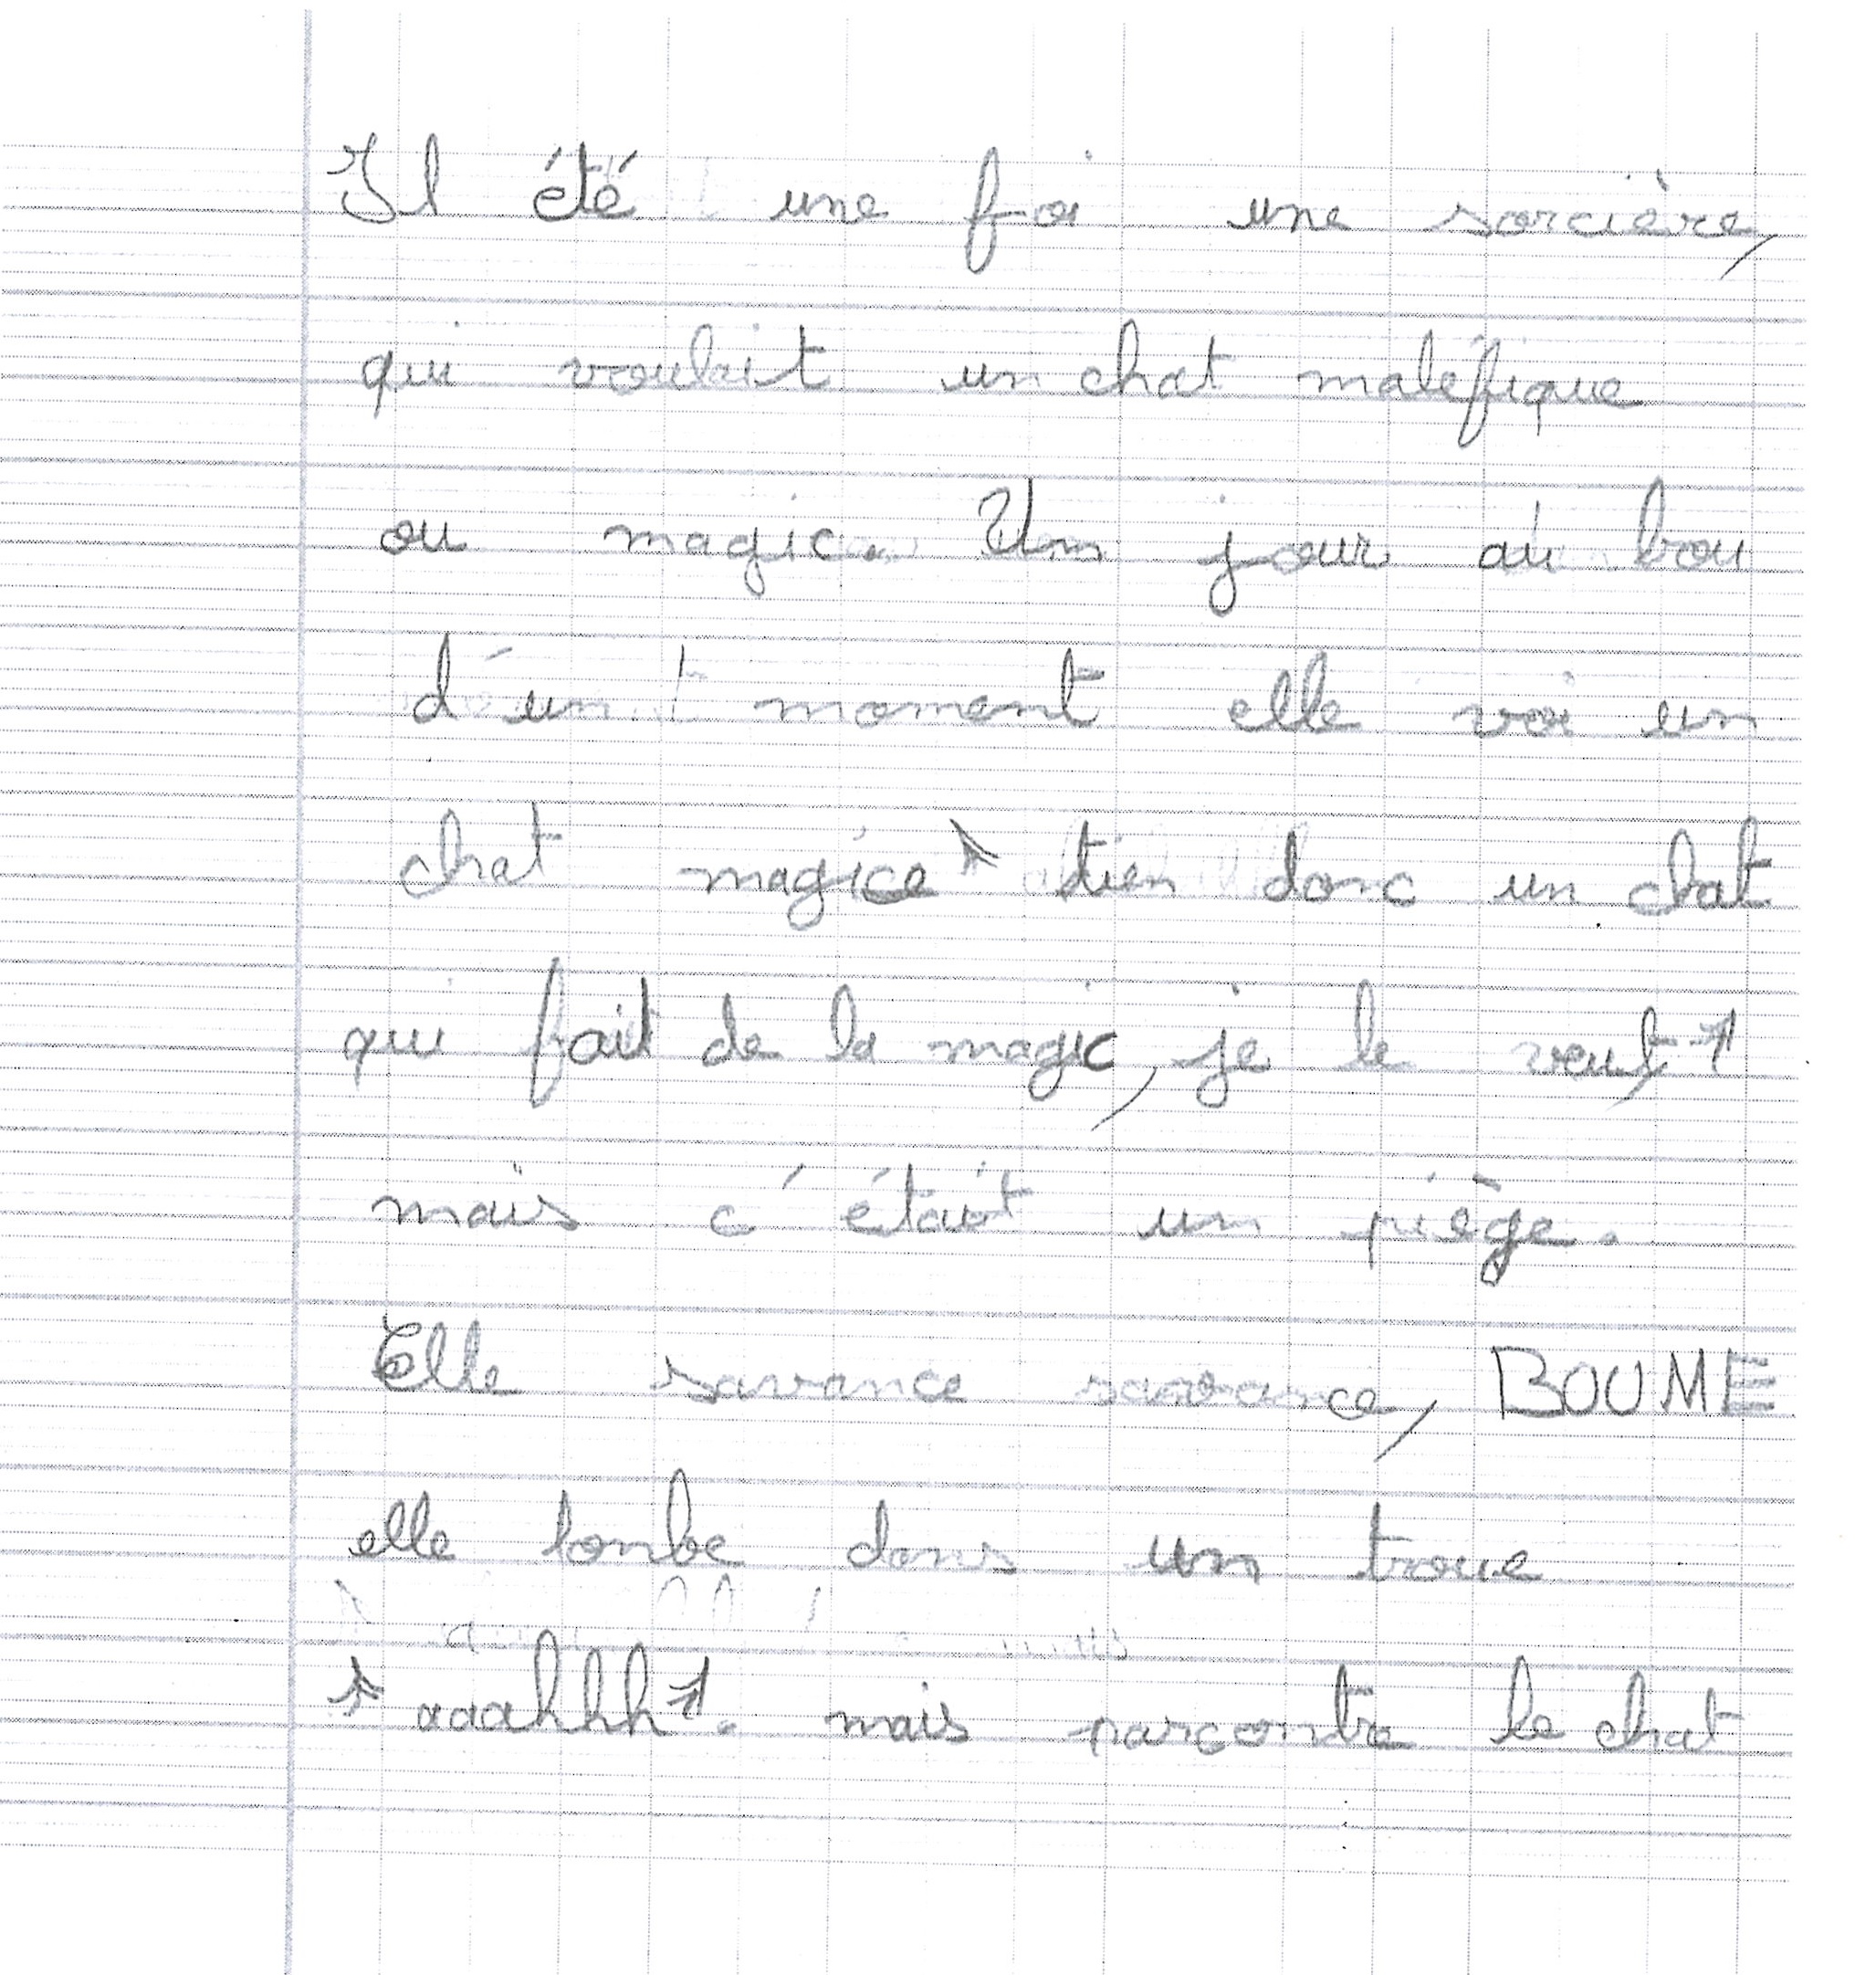 Il été une foi une sorcière,
qui voulait un chat maléfique
ou magic. Un jour au bou
d'un moment elle voi un
chat magice " tien donc un chat
qui fait de la magic, je le veut "
mais c'était un piège.
Elle savance savance, BOUME
elle tonbe dans un troue
" aaahhh ". mais parcontre le chat